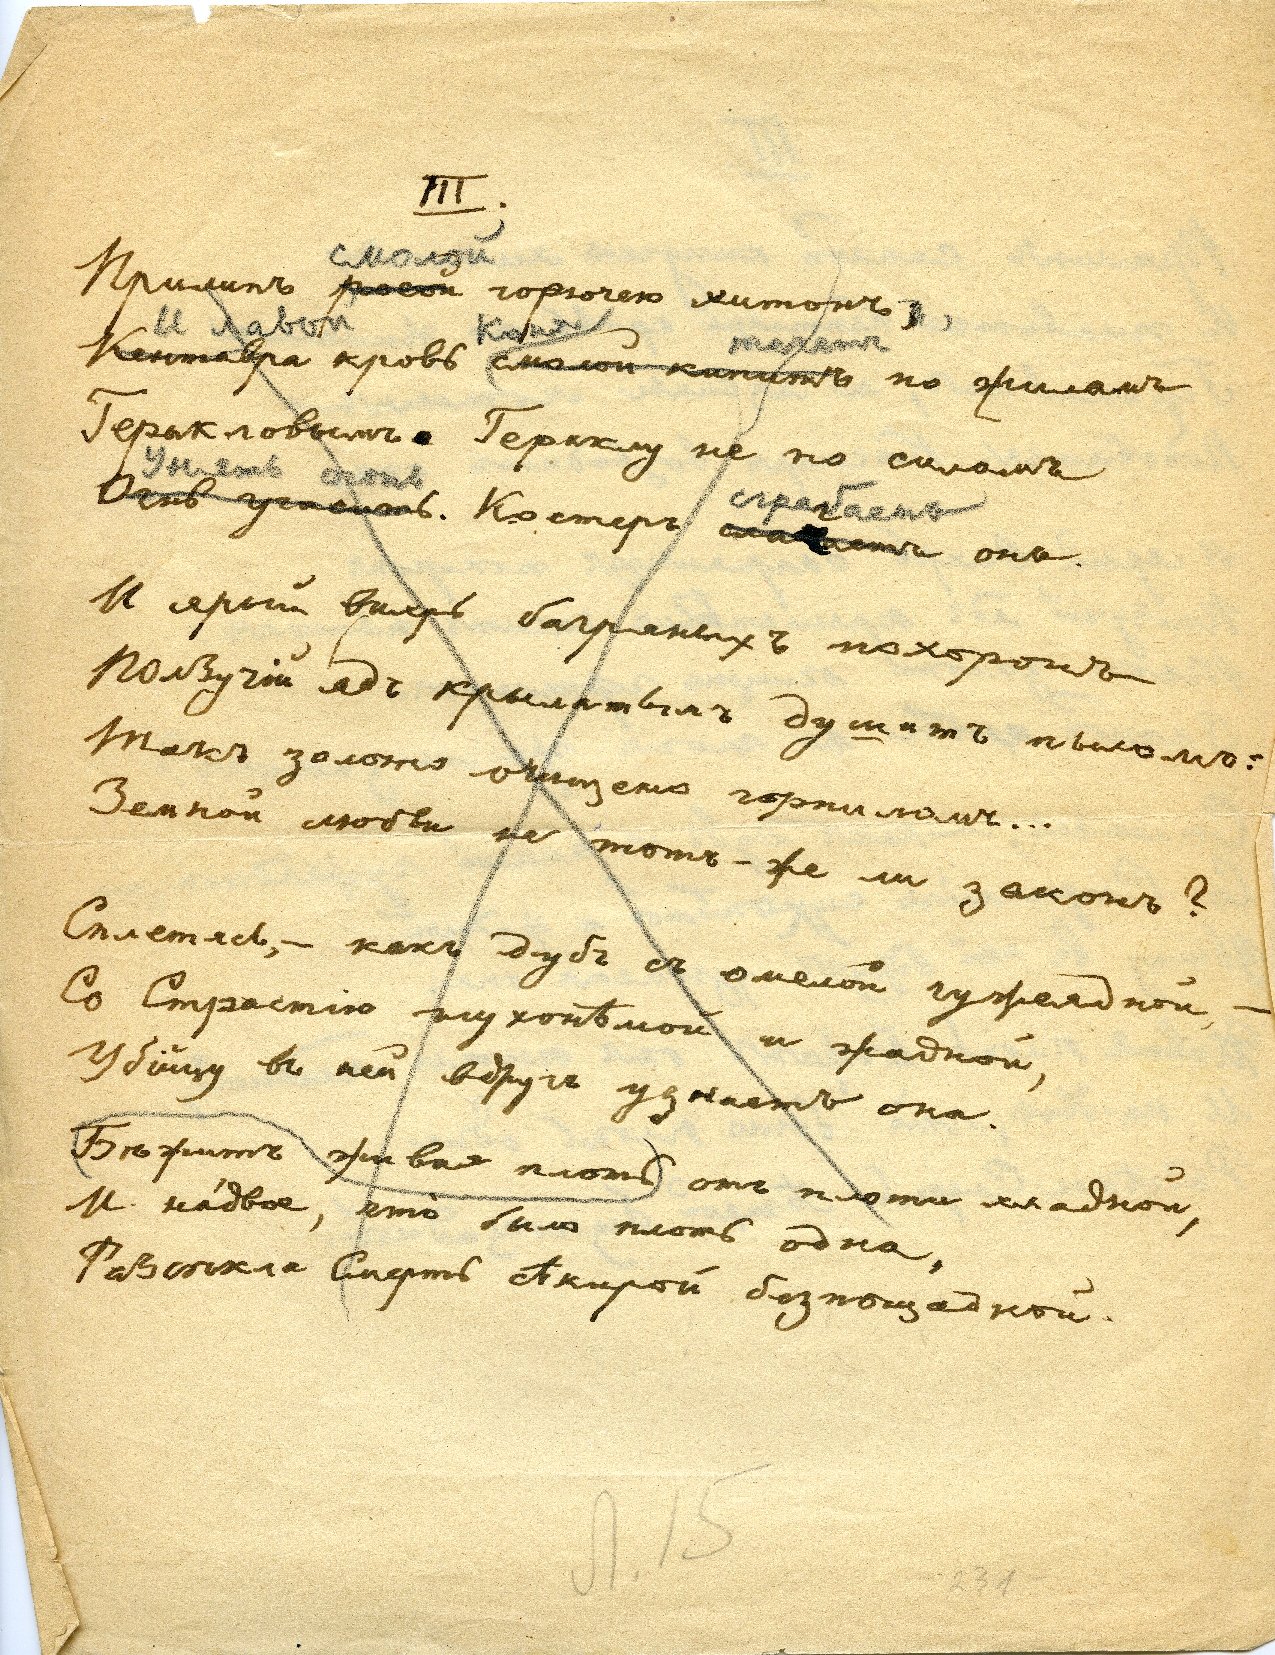 III.
смолой
Прилипъ росой горючею хитонъ,
И лавой
Кентавра кровь смолой кипитъ по жиламъ
Геракловымъ. Гераклу не по силамъ
Унять огонь сгребаетъ
Огнь угасить. Костеръ онъ.
И ярый вихрь багряныхъ похоронъ
Ползучій ядъ крылатымъ душитъ пыломъ:
Такъ золото очищено горниломъ...
Земной любви не тотъ-же ли законъ?
Сплетясь,– какъ дубъ съ омелой чужеядной, –
Со Страстію глухонѣмой и жадной,
Убійцу въ ней вдругъ узнаетъ она.
Бѣжитъ живая плоть отъ плоти хладной,
И на́двое, что̀ было плоть одна,
Разсѣкла Смерть сѣкирой безпощадной.
Л. 15
231